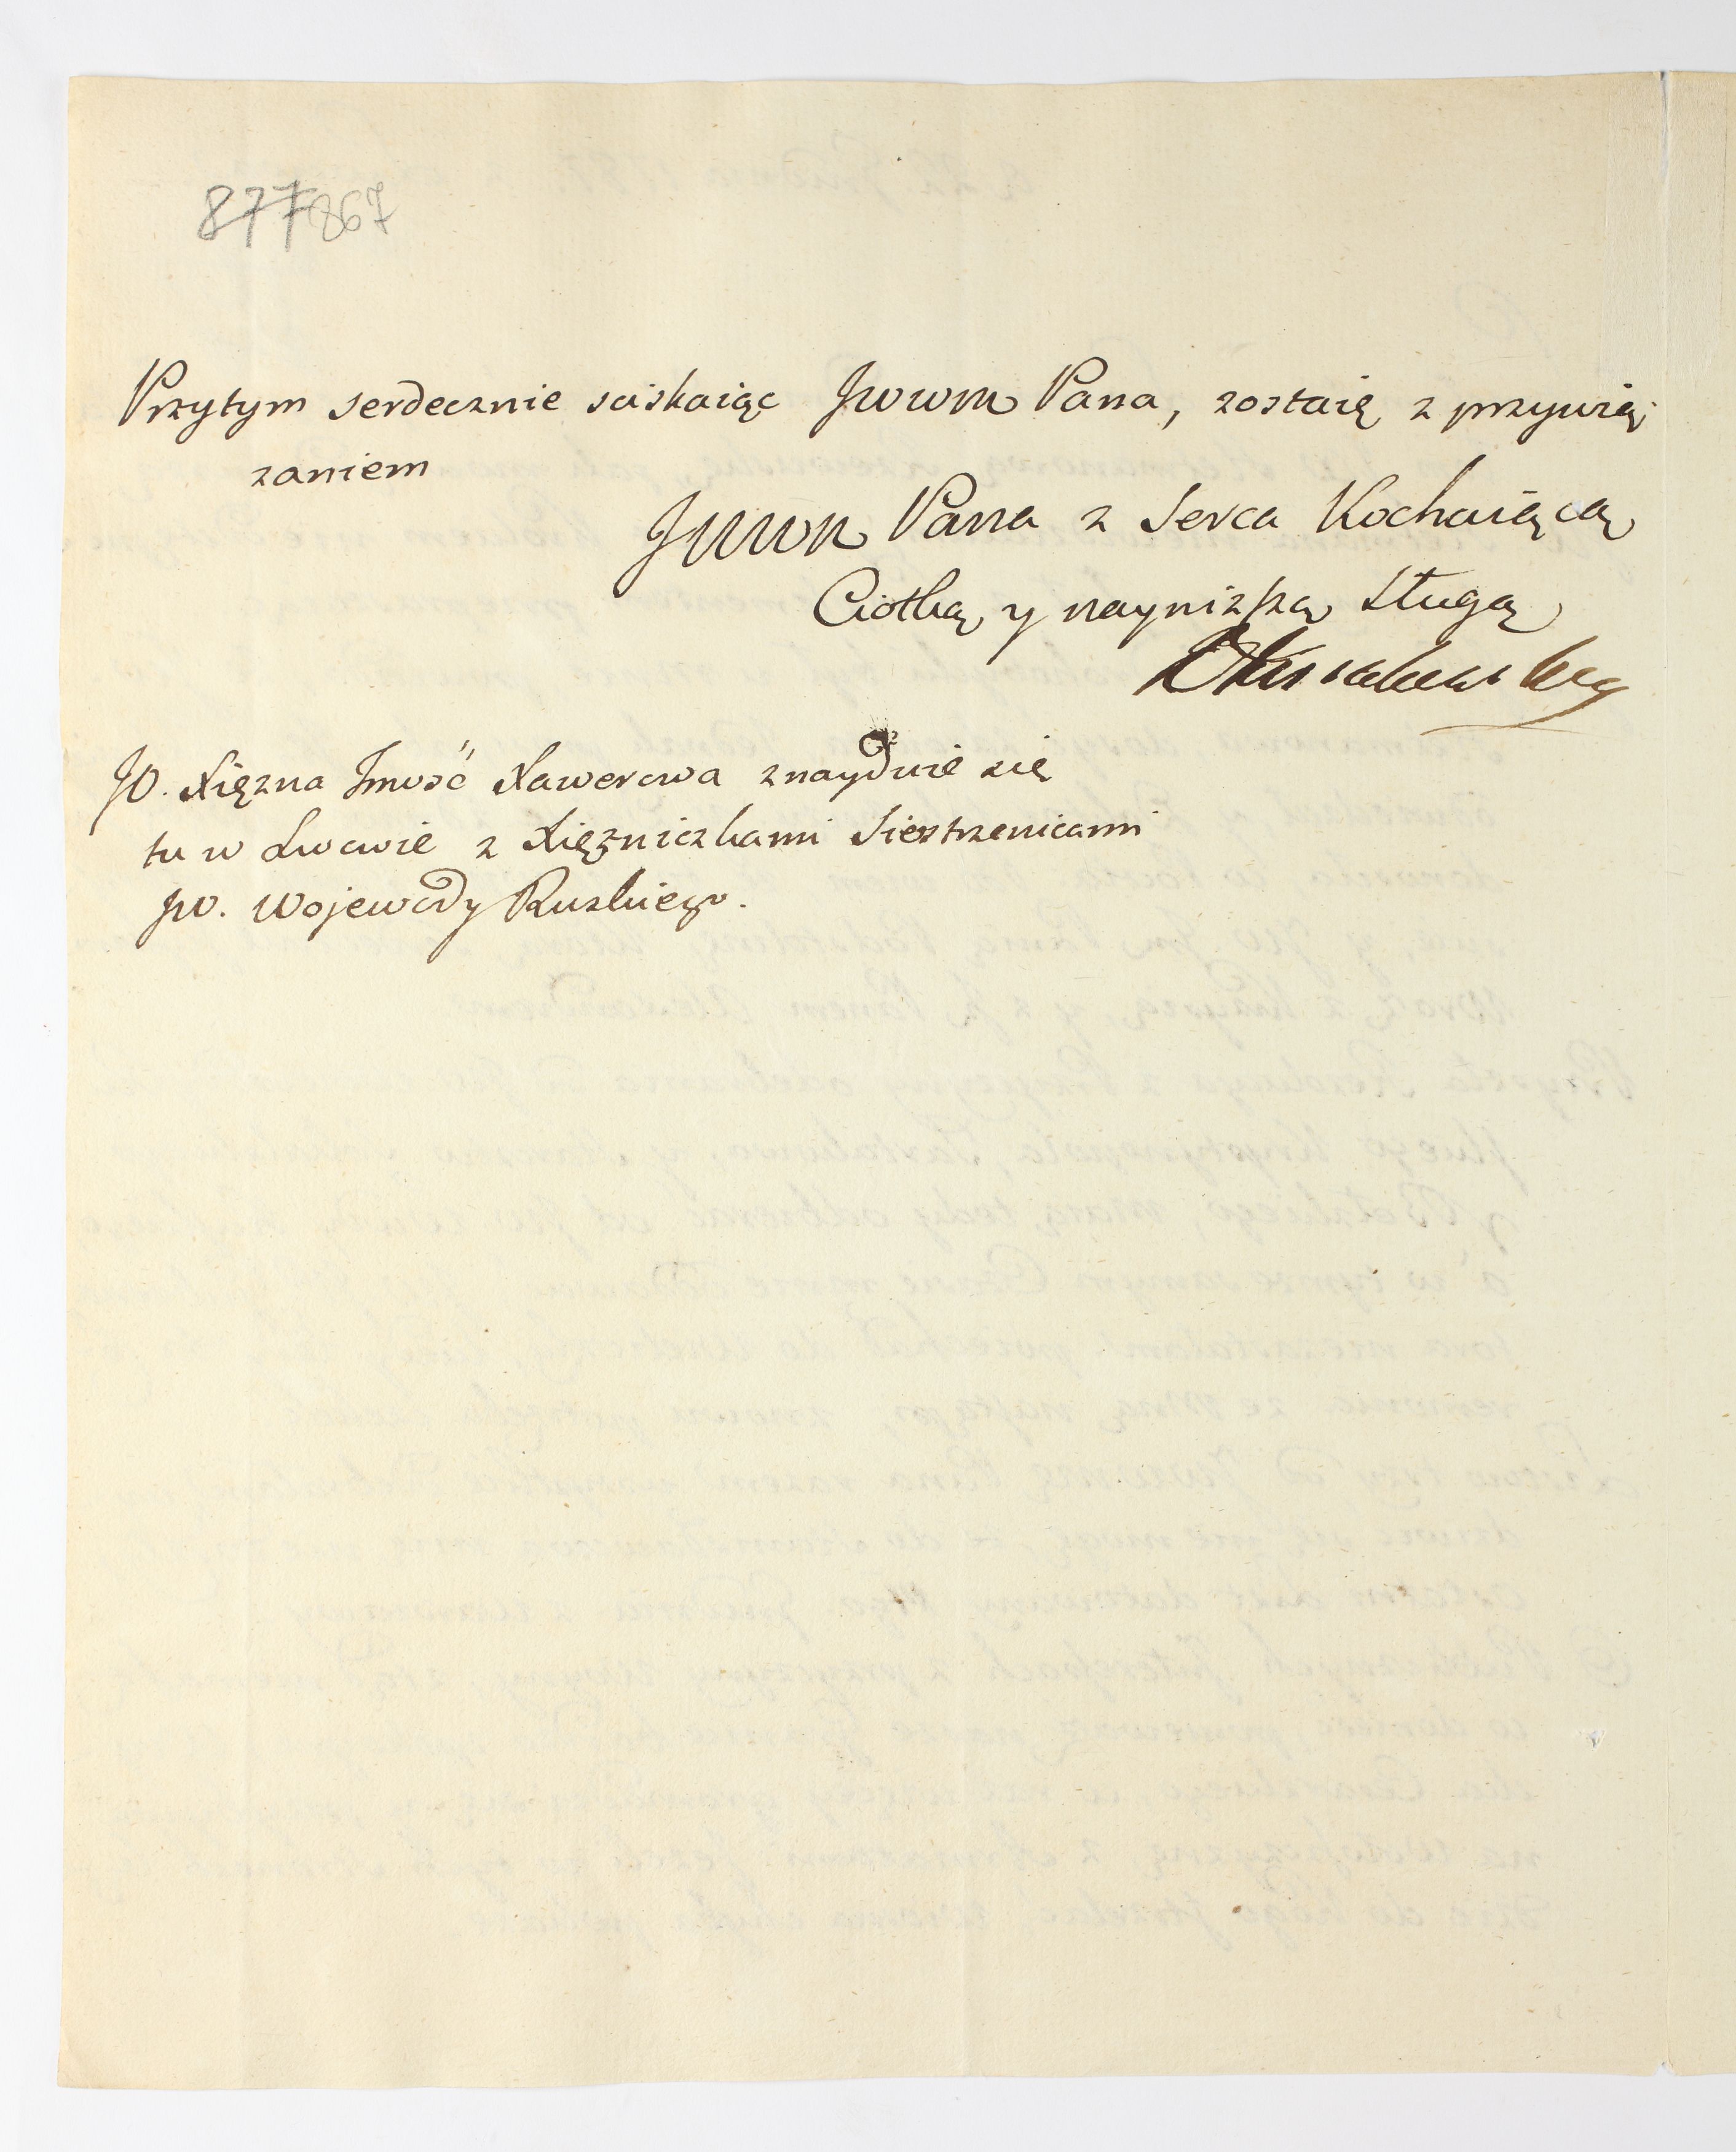 877 867
Przytym serdecznie sciskaiąc JWWM Pana, zostaię z przywią,
zaniem
JWWM Pana z Serca Kochaiącą
Ciotką y nayniższą Sługą
JO. Xięzna Jmość Xawerowa znayduie się
tu w Lwowie z Xięzniczkami Siestrzenicami
JW. Wojewody Ruskiego.